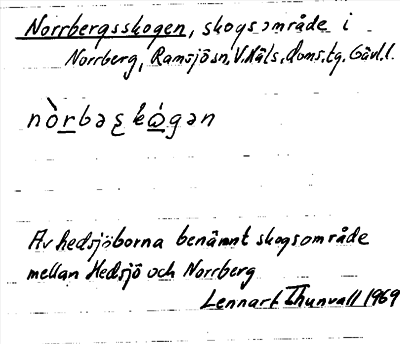 Norrbergsskogen, skogsområde i
Norrberg, Ramsjösn, V. Häls. doms. tg. Gävl. l.
nòrbəʂkώgən
Av hedsjöborna benämnt skogsområde
mellan Hedsjö och Norrberg
Lennart Thunvall 1969